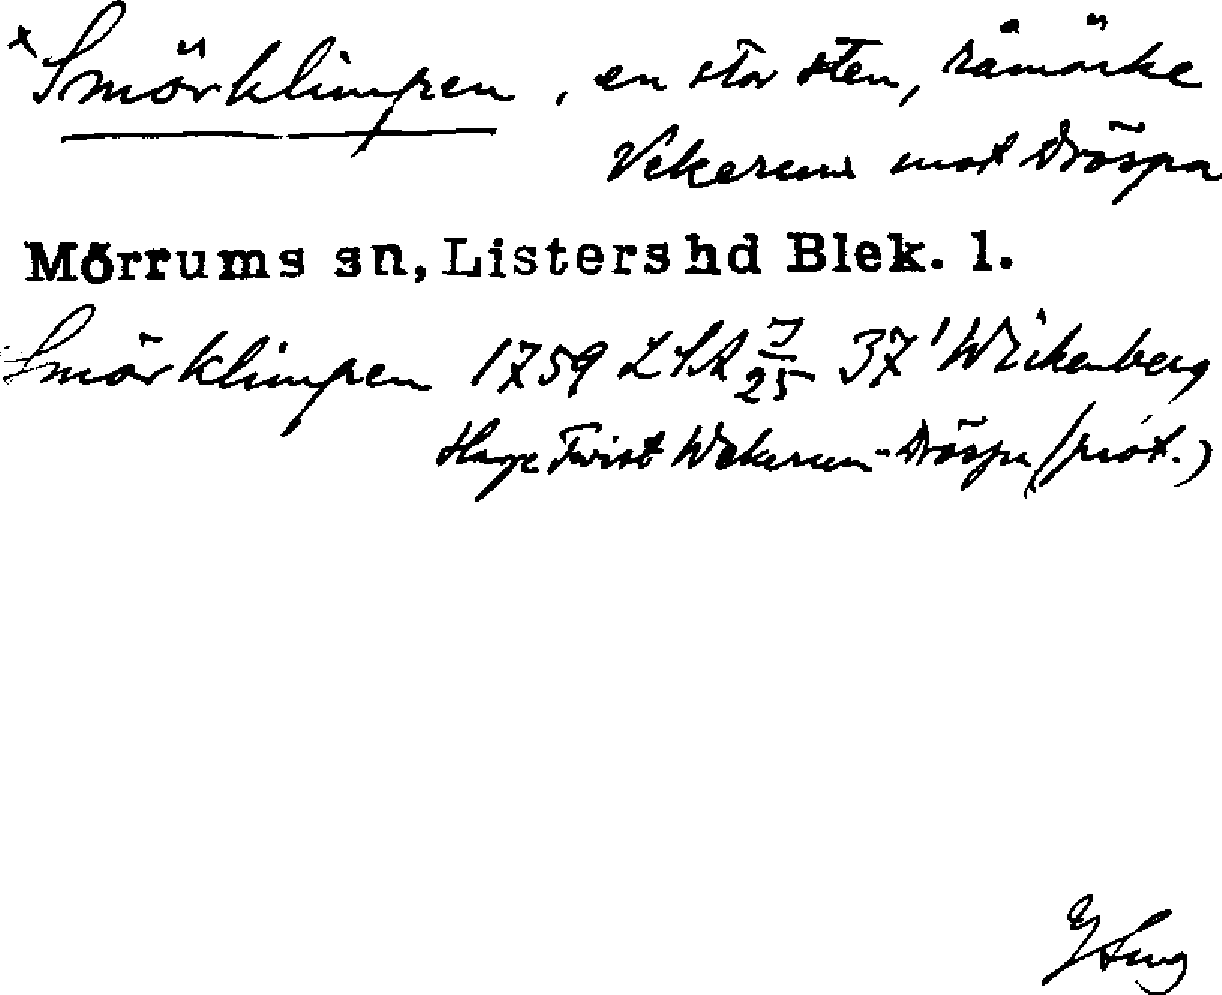 x Smörklimpen, en stor sten, råmärke
Vekerum mot Dröspa
Mörrums sn, Listers hd Blek. l.
Smörklimpen 1759 LSA 7/25 37' Wickenberg
Hage Twist Wekerum-Dröspa (prot.)